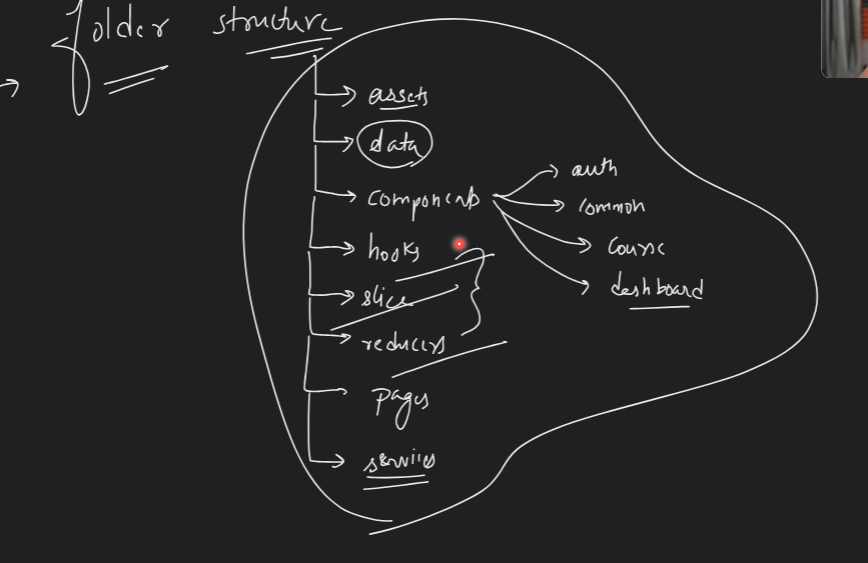 folder structure
assets
data
components
auth
common
course
dashboard
hooks
slice
reducers
pages
services